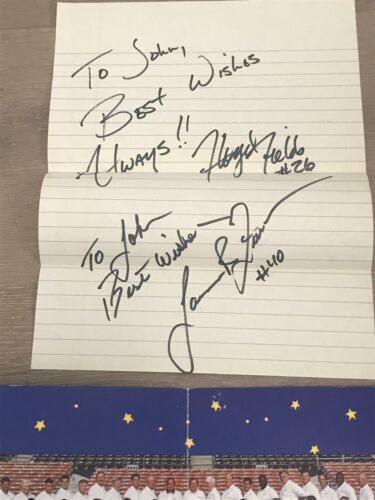 To John,
Best Wishes
Always!! Floyd Fields
#26
To John
Best Wishes
James B.
#40